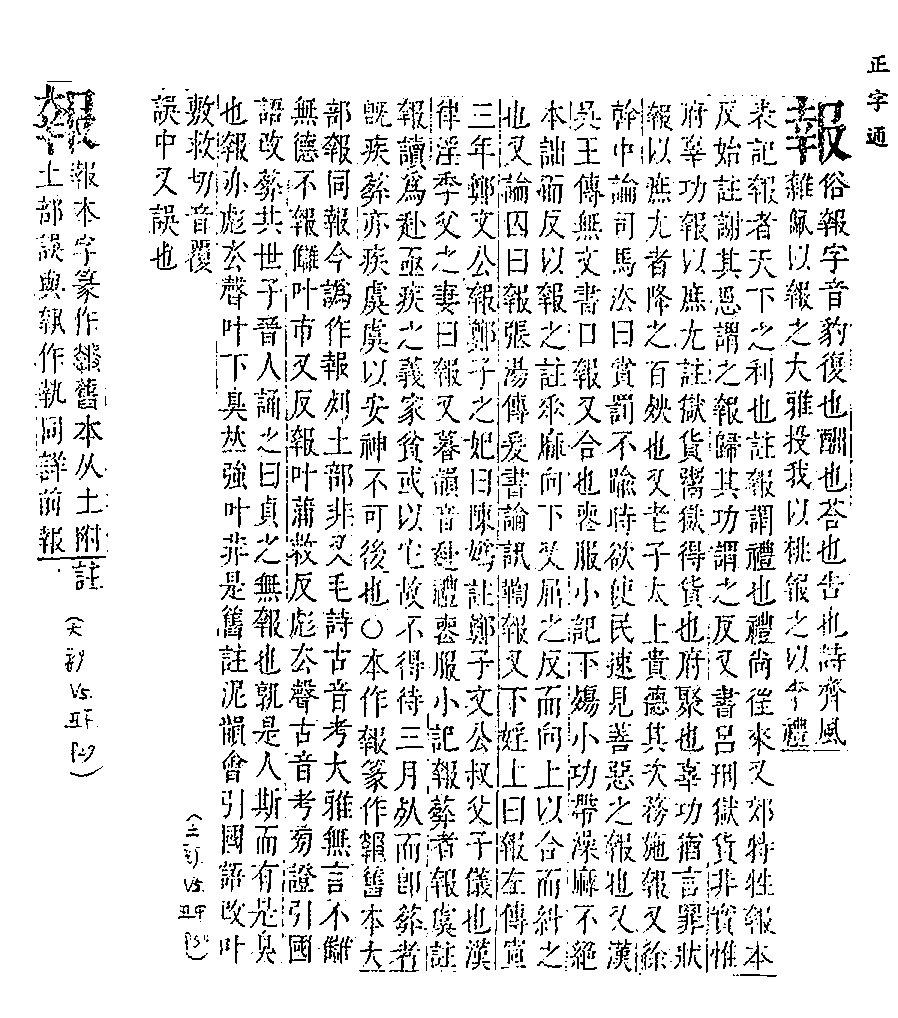 正字通
報
俗報字音豹復也酬也荅也告也詩齊風
雜佩以報之大雅投我以桃報之以李禮
表記報者天下之利也註報謂禮也禮尚徃來又郊特牲報本
反始註謝其恩謂之報歸其功謂之反又書呂刑獄貨非寶惟
府辜功報以庶尤註獄貨鬻獄得貨也府聚也辜功猶言罪狀
報以庶尤者降之百殃也又老子太上貴德其次務施報又徐
幹中論司馬法曰賞罰不踰時欲使民速見善惡之報也又漢
吳王傳無文書口報又合也喪服小記下殤小功帶澡麻不絕
本詘而反以報之註麻向下又屈之反而向上以合而糾之
也又論囚曰報張湯傳爰書論訊鞫報又下婬上曰報左傳宣
三年鄭文公報鄭子之妃曰陳媯註鄭子文公叔父子儀也漢
律淫季父之妻曰報又暮韻音赴禮喪服小記報葬者報虞註
報讀爲赴亟疾之義家貧或以它故不得待三月死而卽葬者
旣疾葬亦疾虞虞以安神不可後也○本作報篆作報舊本大
部報同報今譌作報列土部非又毛詩古音考大雅無言不讎
無德不報讎叶市又反報叶蒲救反彪去聲古音考㫄證引國
語改葬共世子晉人誦之曰貞之無報也孰是人斯而有是臭
也報亦彪去聲叶下臭 強叶非是舊註泥韻會引國語改叶
敷救切音覆
誤中又誤也
(土部 vs.
報本字篆作 舊本从土附註
土部誤與執作執同詳前報
(大部 vs.